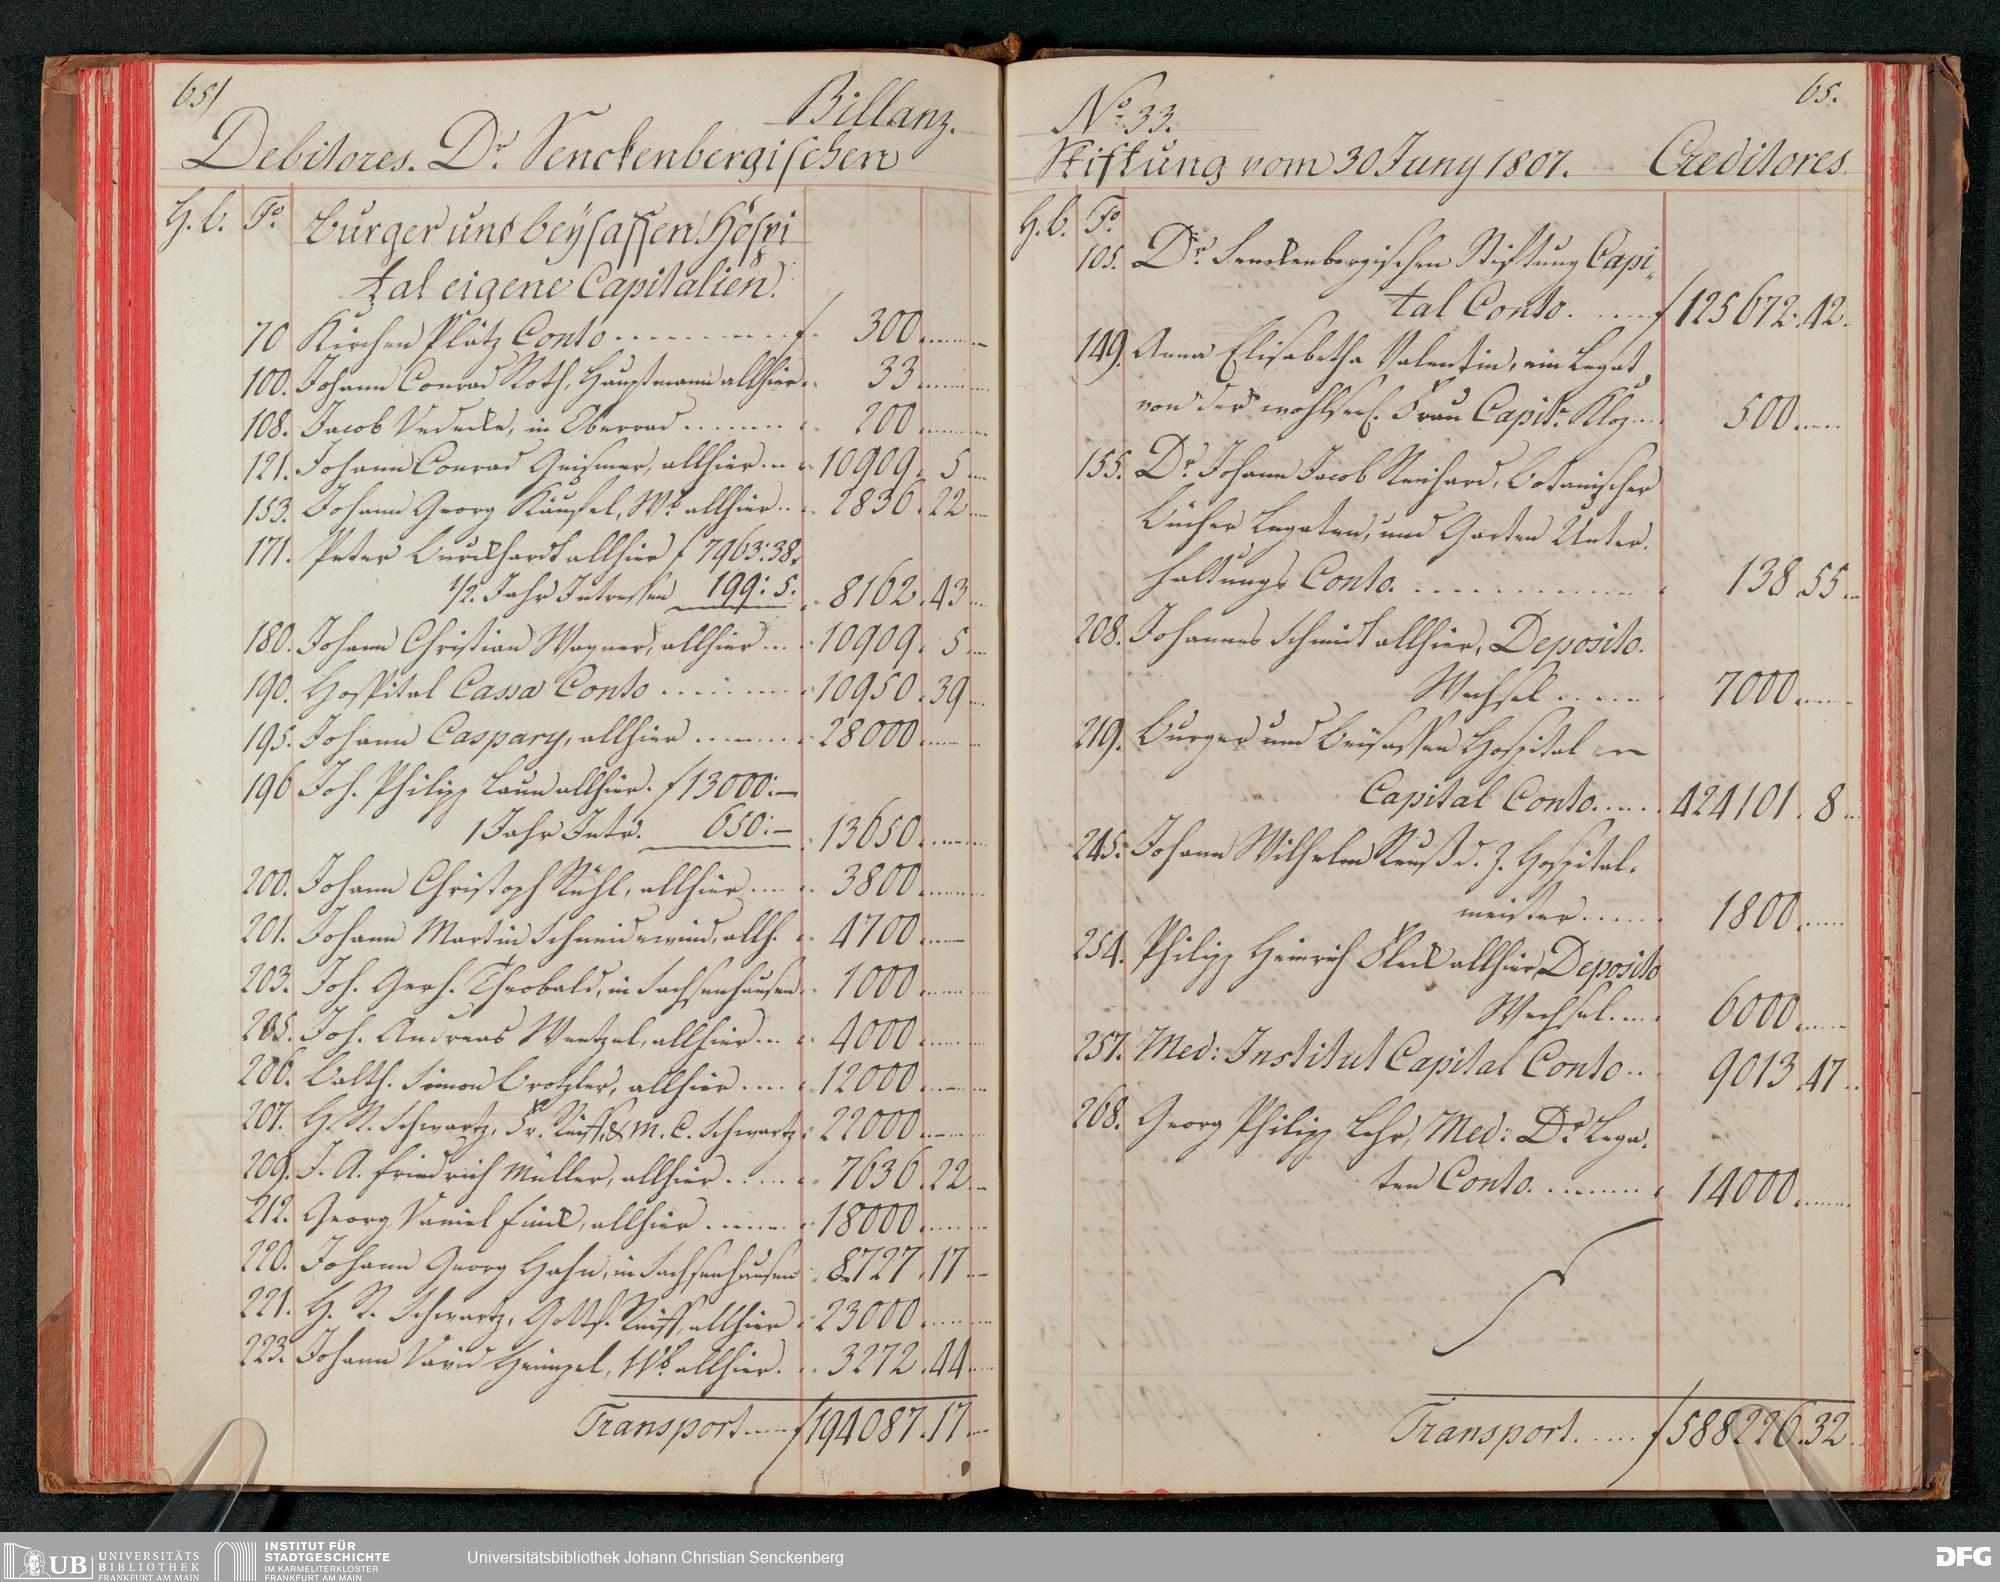 65/
Billanz.
Debitores. Dr. Senckenbergischen
H. b. Fo. burger und beysassen Hospi
tal eigene Capitalien.
70 Kirchen Plätz Conto . . . . f 300
100. Johann Conrad Roth, Hauptmann allhier 33
108. Jacob in Oberrad 200
121. Johann Conrad Geissmer, allhier 10909. 5
153. Johann Georg Käussel, Wb. allhier 2836. 22
171. Peter Burckhardt allhier f 7963:38.
1/2 Jahr Intressen 199:5. 8162. 43
180. Johann Christian Wagner, allhier 10909. 5
190. Hospital Cassa Conto 10950. 39
195. Johann Caspary, allhier 28000
196 Joh. Philipp Laun allhier. f 13000:—
1 Jahr Intr. 650:— 13650
200. Johann Christoph Rühl, allhier 3800
201. Johann Martin Schneidewind, allh. 4700
203. Joh. Gerh. Theobald, in Sachsenhausen 1000
205. Joh. Andreas Wentzel, allhier 4000
206. Balth. Simon allhier 12000
207. H. N. Schwartz, Fr. Reiff, & M. C. Schwartz 22000
209. J. A. Friedrich Müller, allhier 7636. 22
212. Georg Daniel Finck, allhier 18000
220. Johann Georg Hahn, in Sachsenhausen 8727. 17
221. H. N. Schwartz, Gottf. Reiff, allhier 23000
223. Johann David Heimpel, Wb. allhier. 3272. 44
Transport f 194087. 17
65.
No. 33.
Stiftung vom 30 Juny 1807. Creditores
H. b. Fo.
105. Dr. Senckenbergischen Stiftung Capi
tal Conto. f 125672. 42.
149. Anna Elisabetha Valentin, ein Legat
von der wohlseel. Frau Capit. Kloz 500
155. Dr. Johann Jacob Reichard, botanischer
Bücher Legaten, und Garten Unter
haltungs Conto. 138. 55
208. Johannes Schmidt allhier, Deposito
Wechsel 7000
219. Burger und Beysassen Hospital
Capital Conto. 424101. 8
245. Johann Wilhelm Reuß d. Z. Hospital
meister 1800
254. Philipp Heinrich Fleck allhier Deposito
Wechsel 6000
257. Med: Institut Capital Conto 9013. 47
268. Georg Philipp Lehr, Med: Dr. Lega
ten Conto. 14000
Transport. f 588226. 32
UB UNIVERSITÄTS
BIBLIOTHEK
FRANKFURT AM MAIN
INSTITUT FÜR
STADTGESCHICHTE
IM KARMELITERKLOSTER
FRANKFURT AM MAIN
Universitätsbibliothek Johann Christian Senckenberg
DFG